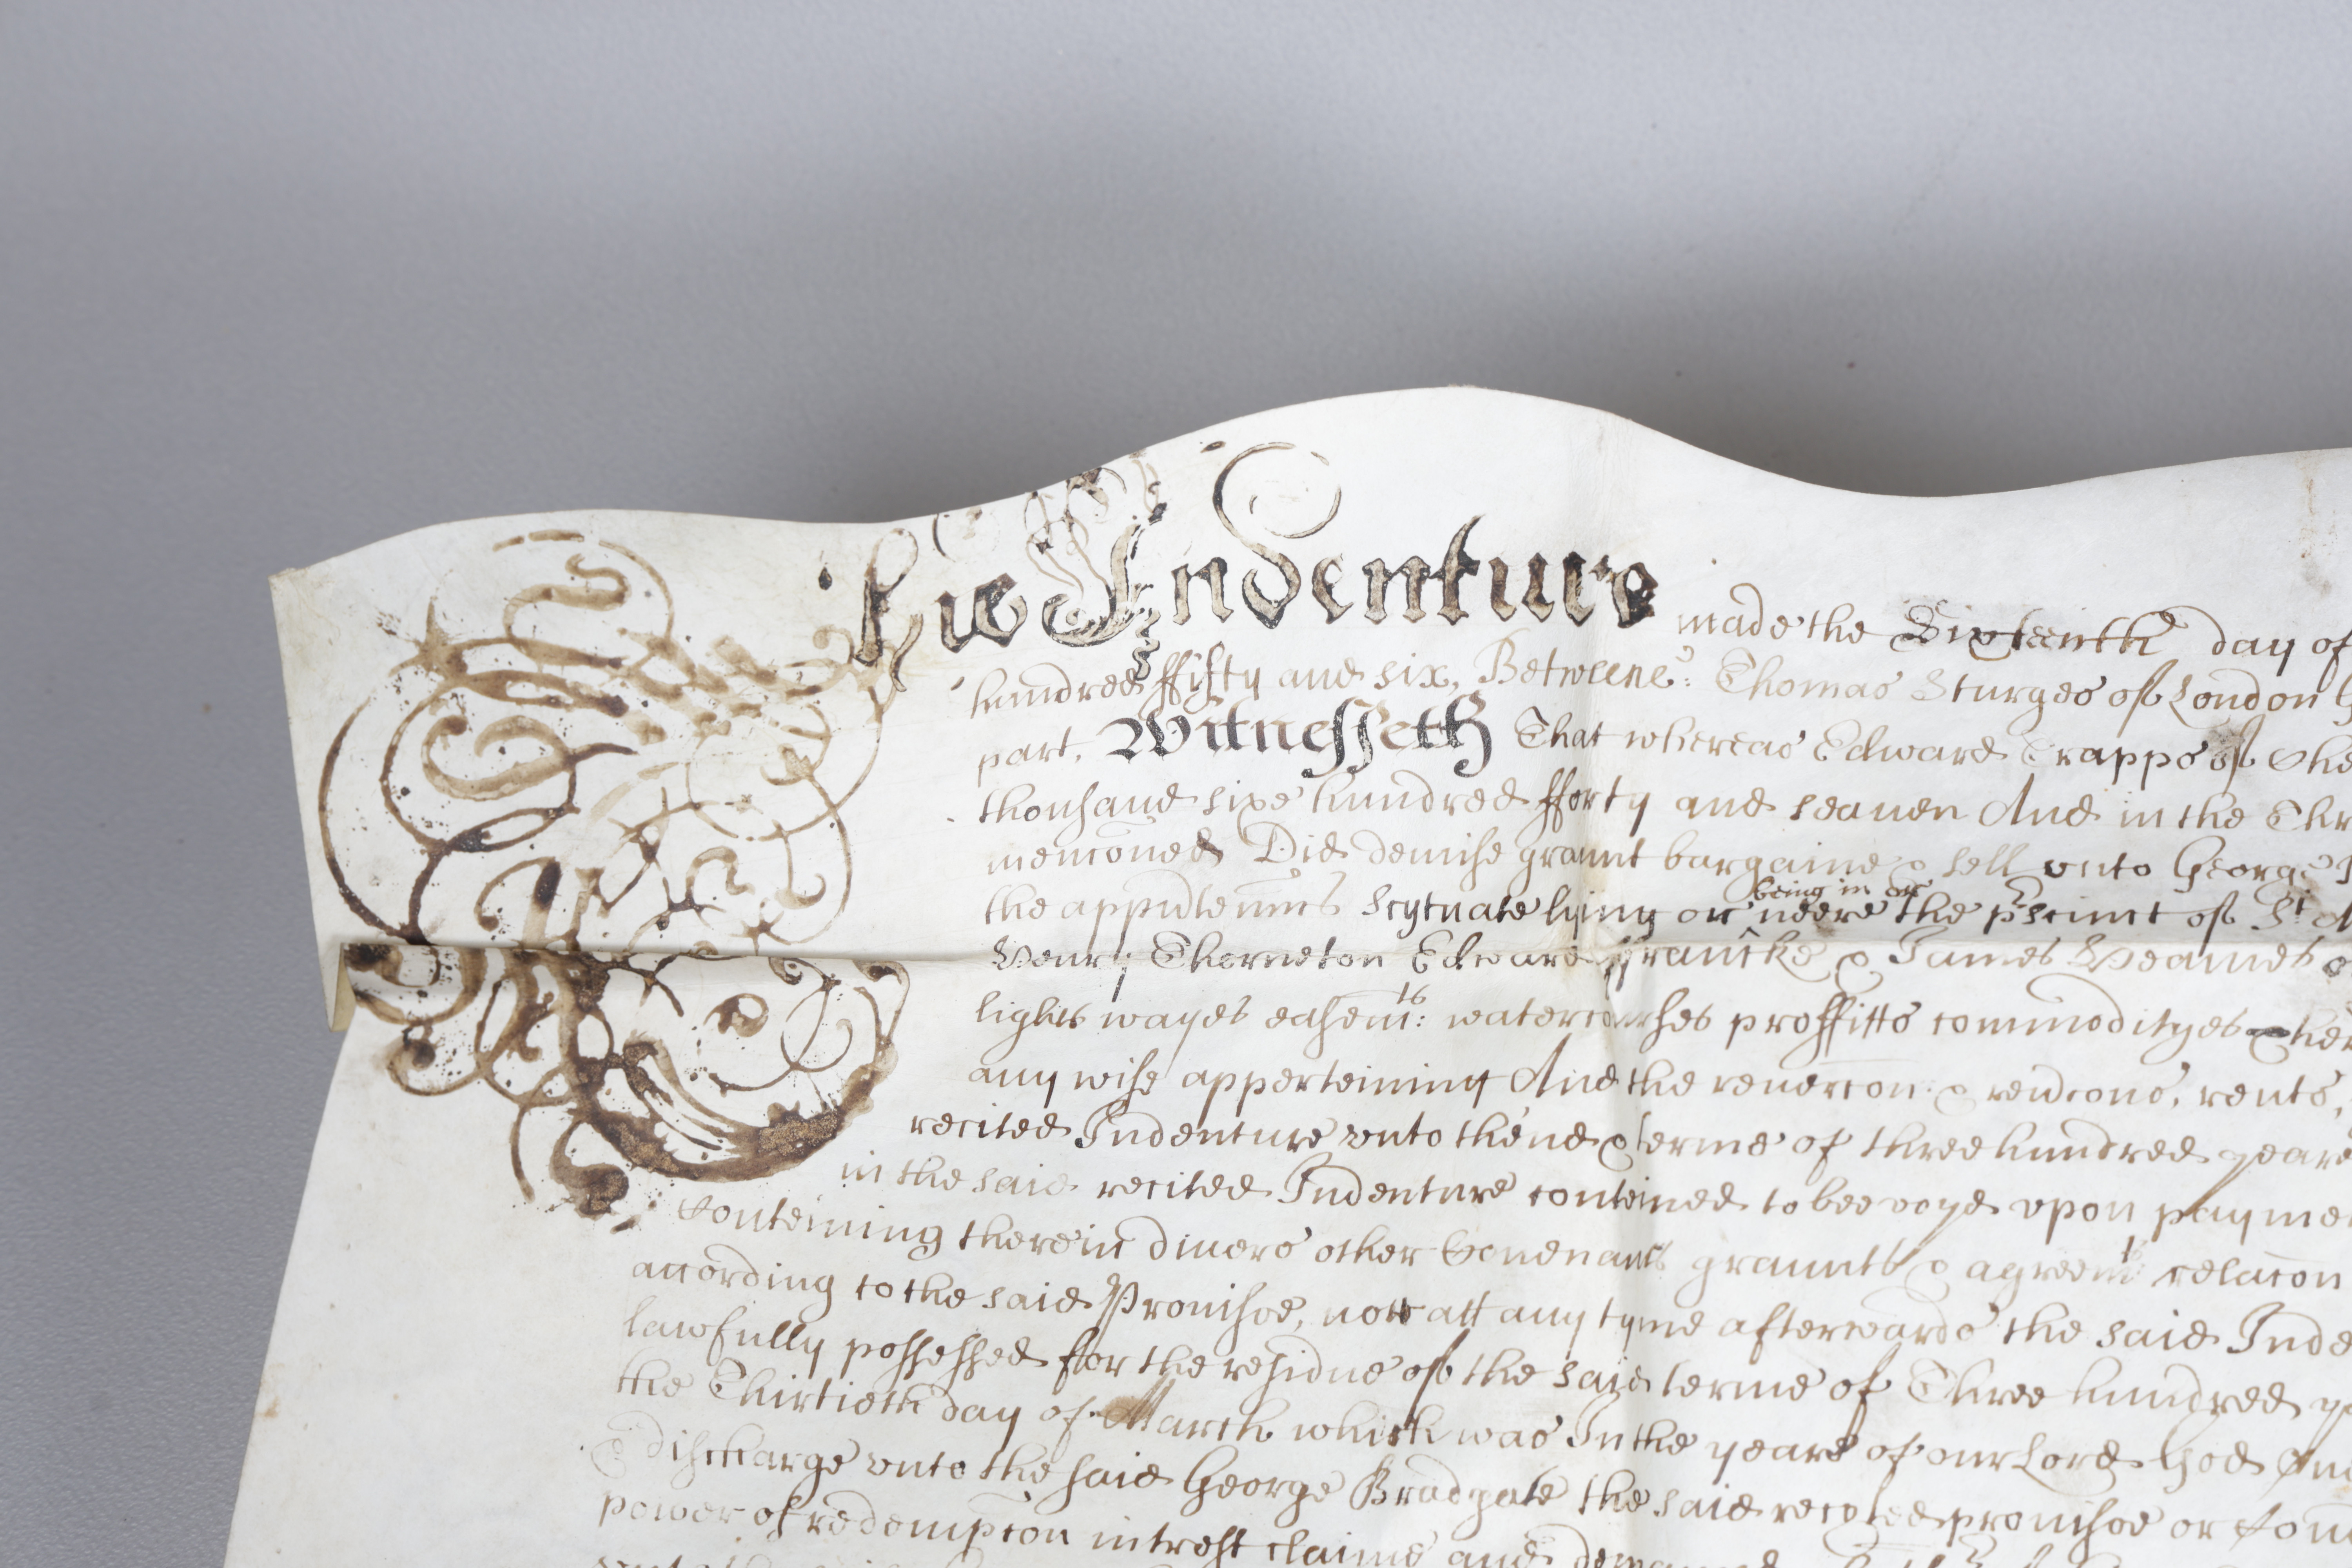 This Indenture made the Sixteenth day of
hundred ffifty and six, Betweene: Thomas Sturges of London
part, Witnesseth That whereas Edward Trapps of the
thousand sixe hundred fforty and seaven And in the
menconed Did demise graunt bargaine & sell vnto George
the appurtenncs scytuate lying or being in or neere the pscinct of St
Henry Therneton Edward ffrancke & James Weames &
lights wayes easemts: watercourses proffitts commodityes
any wise apperteining And the revercon & revercons, rents,
recited Indenture vnto thend & terme of three hundred yeare
in the said recited Indenture conteined to bee voyd vpon payme
Conteining therein divers other Covenants graunts & agreemts: relacon
according to the said Provisoe, nott att any tyme afterwards the said Inde
lawfully possessed for the residue of the said terme of Three hundred ye
the Thirtieth day of March which was In the yeare of our Lord God One
& discharge vnto the said George Bradgate the said recyted provisoe or Con
power of redempcon intrest claime and